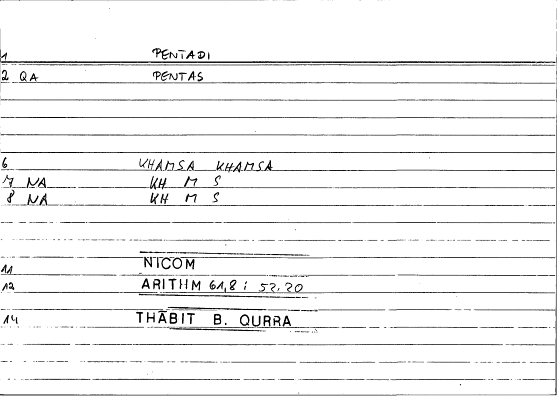 1 PENTADI
2 QA PENTAS
6 KHAMSA KHAMSA
7 NA KH M S
8 NA KH M S
11 NICOM
12 ARITHM 61,8 ; 52,20
14 THĀBIT B. QURRA